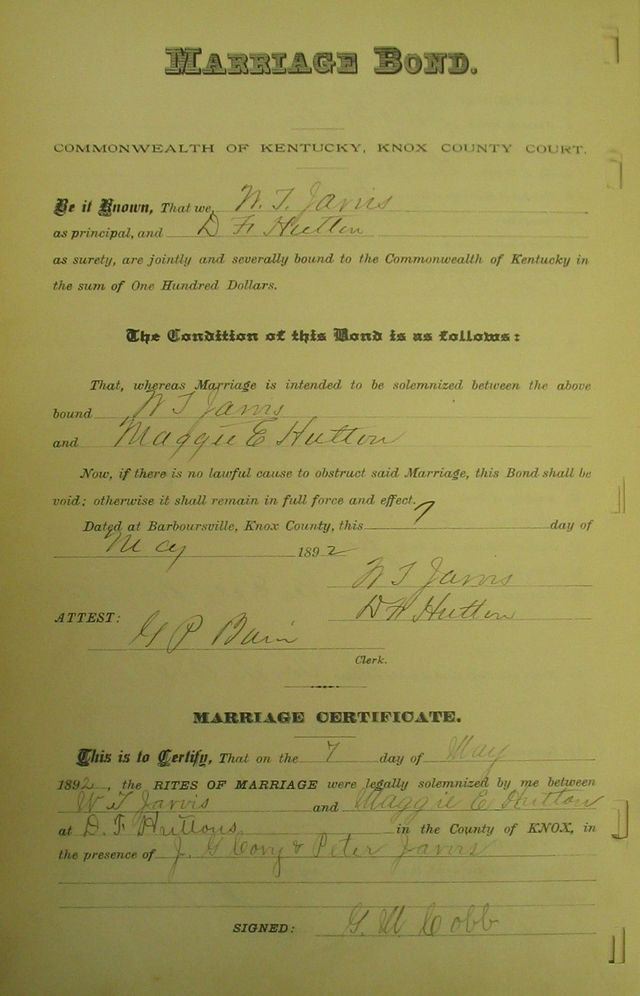 MARRIAGE BOND.
COMMONWEALTH OF KENTUCKY, KNOX COUNTY COURT.
Be it Known, That we, W. T. Jarvis
as principal, and D F Hutton
as surety, are jointly and severally bound to the Commonwealth of Kentucky in
the sum of One Hundred Dollars.
The Condition of this Bond is as follows:
That, whereas Marriage is intended to be solemnized between the above
bound W T Jarvis
and Maggie E Hutton
Now, if there is no lawful cause to obstruct said Marriage, this Bond shall be
void; otherwise it shall remain in full force and effect.
Dated at Barboursville, Knox County, this 7 day of
May 1892
W T Jarvis
D F Hutton
ATTEST:
G P Bain
Clerk.
MARRIAGE CERTIFICATE.
This is to Certify, That on the 7 day of May
1892, the RITES OF MARRIAGE were legally solemnized by me between
W T Jarvis and Maggie E Hutton
at D. F. Huttons in the County of KNOX, in
the presence of J. G & Peter Jarvis
SIGNED: G. M. Cobb